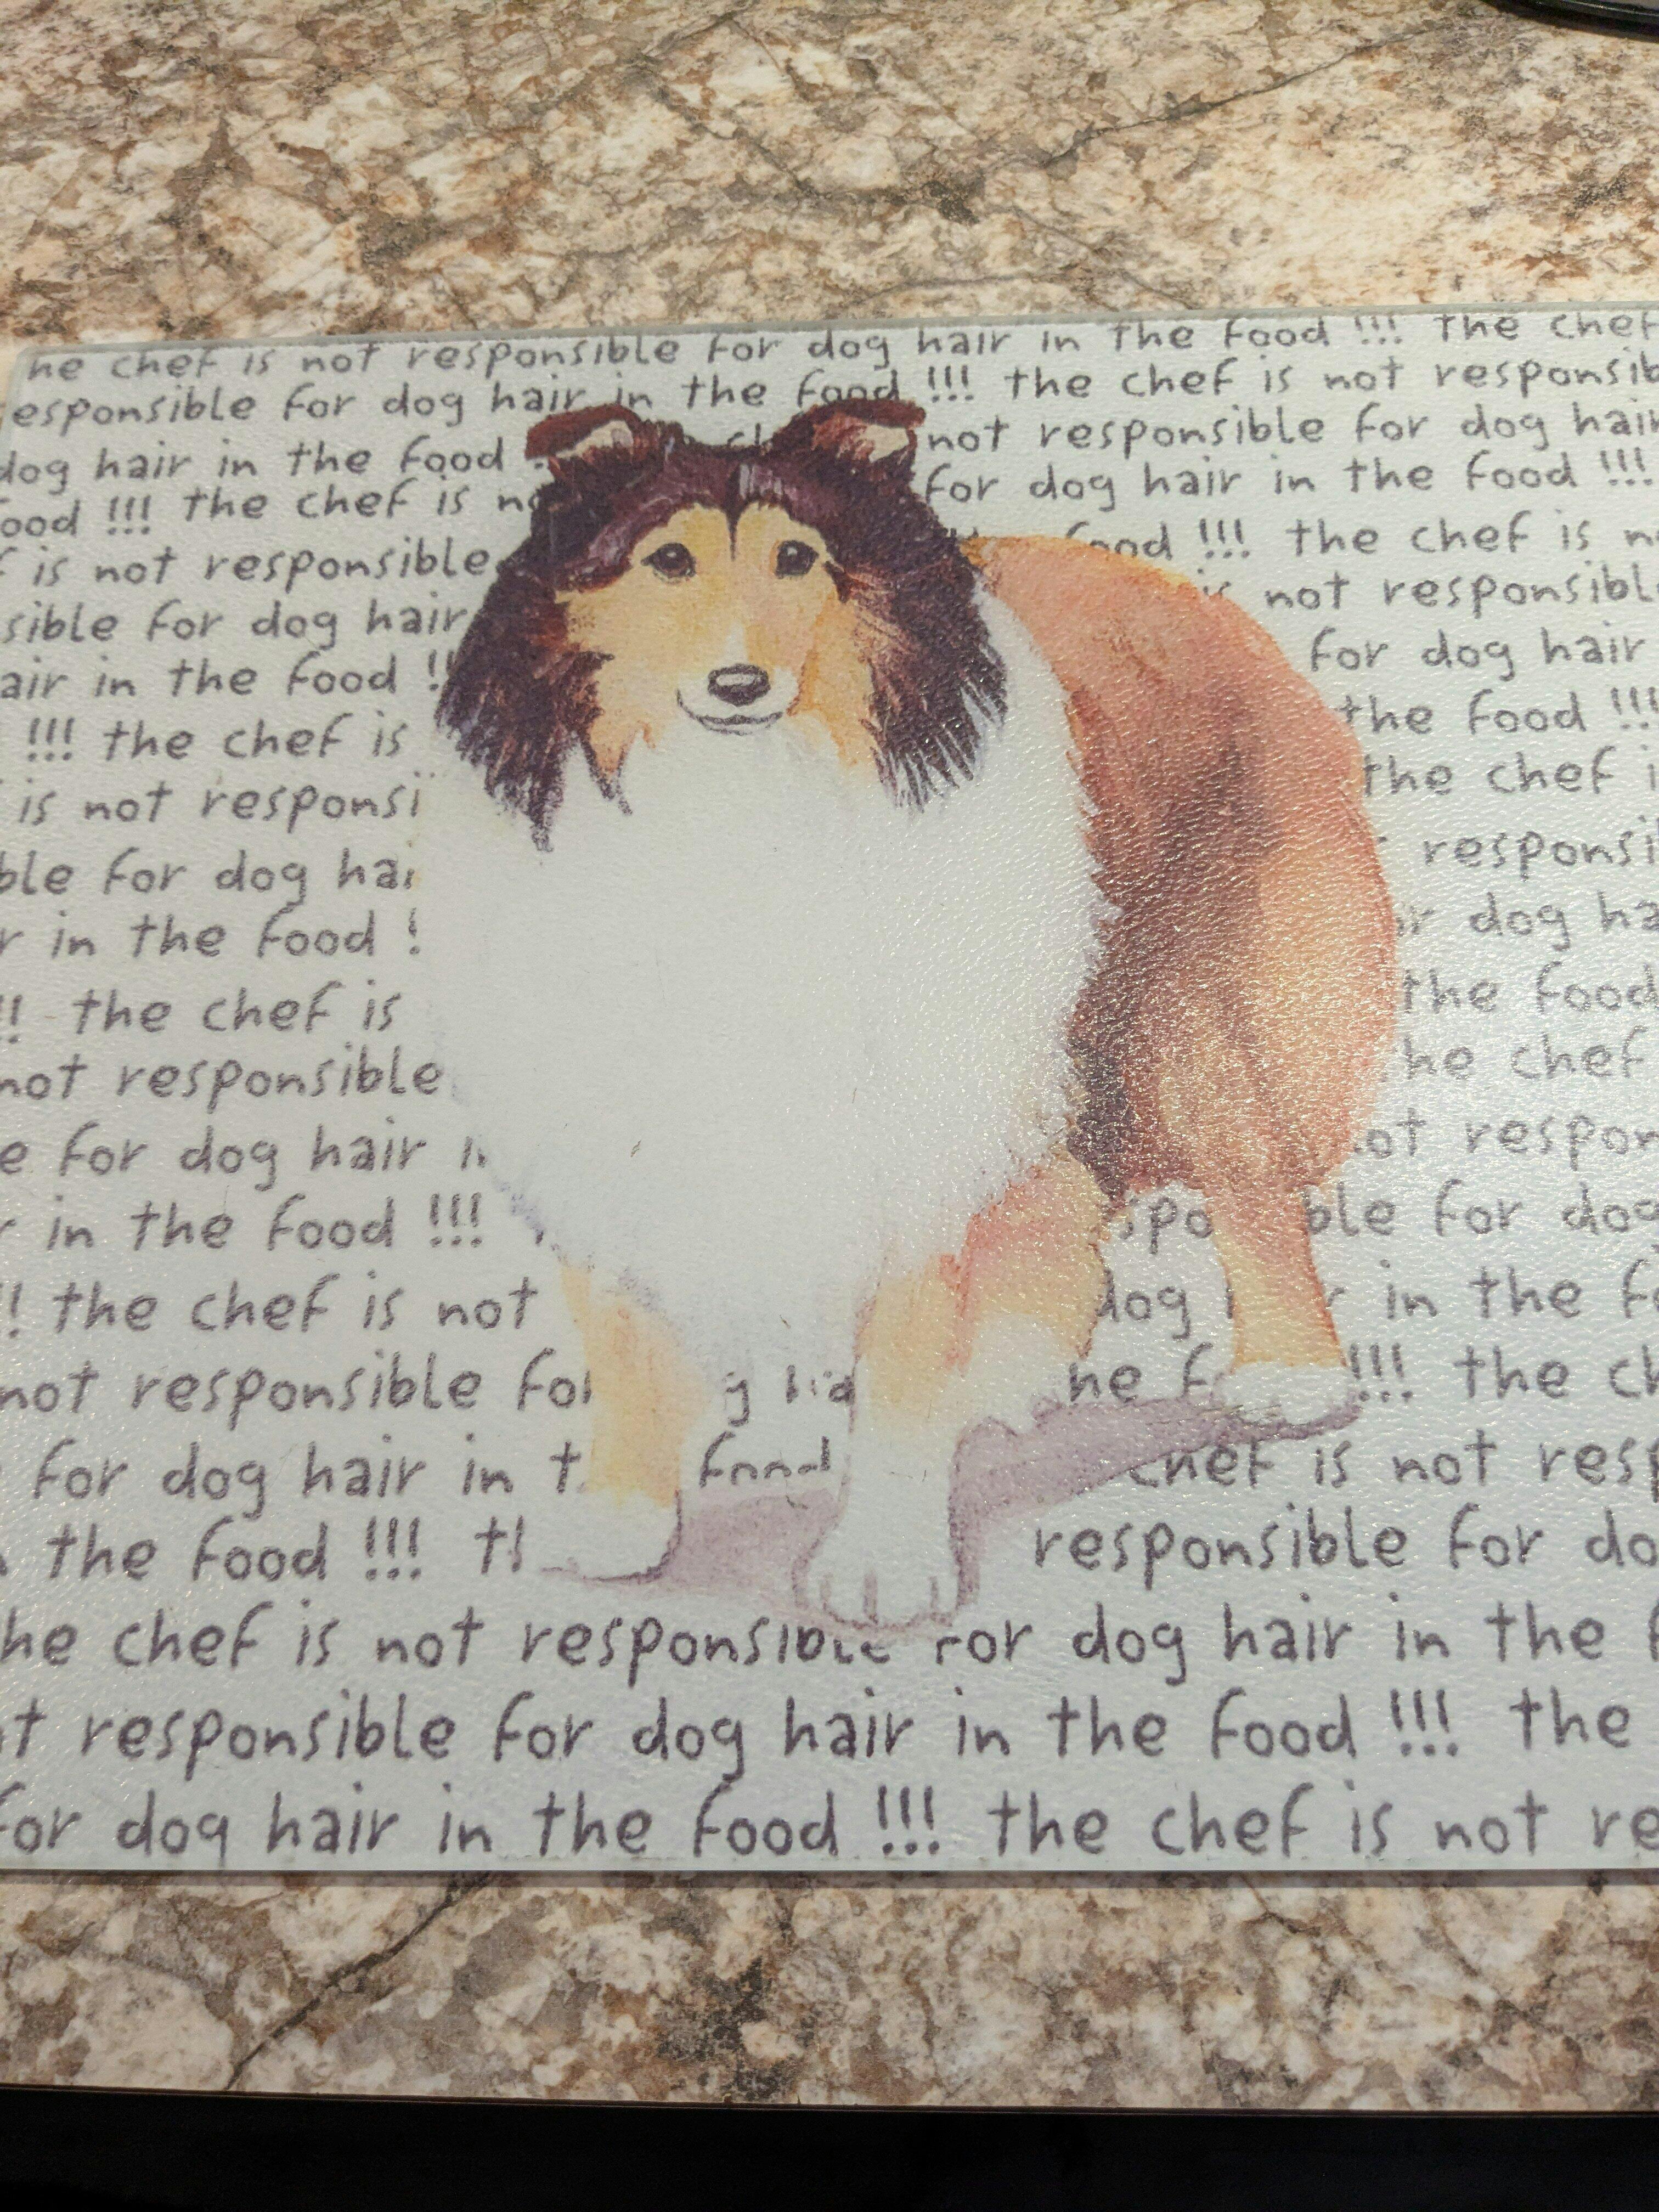 he chef is not responsible for dog hair in the food !!! the chef
esponsible for dog hair in the food !!! the chef is not responsib
dog hair in the food not responsible for dog hair
ood !!! the chef is for dog hair in the food !!!
is not responsible food !!! the chef is
sible for dog hair is not responsible
air in the food !! for dog hair
!!! the chef is the food !!!
is not responsi the chef
ble for dog hai responsi
r in the food ! dog ha
!! the chef is the food
not responsible he chef
e for dog hair ot respon
r in the food !!! spo ble for dog
!! the chef is not dog in the fo
not responsible for he f !!! the ch
for dog hair in food chef is not resp
the food !!! th responsible for do
he chef is not responsible for dog hair in the f
t responsible for dog hair in the food !!! the
for dog hair in the food !!! the chef is not re